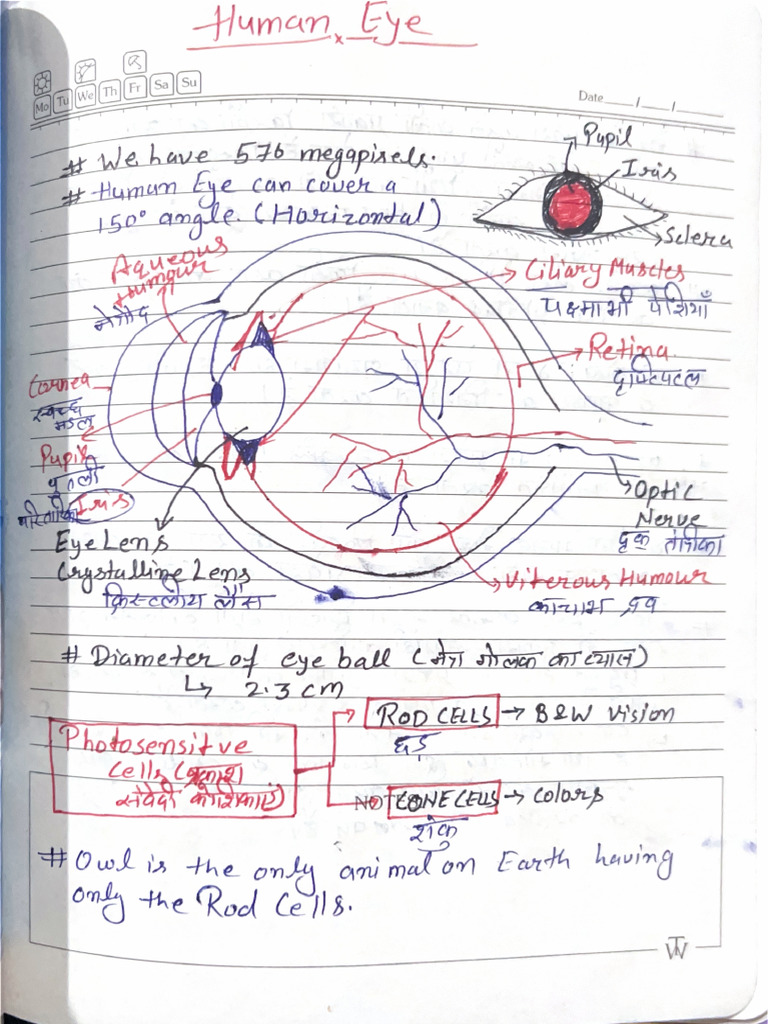 Human Eye
Mo Tu We Th Fr Sa Su
Date
# We have 576 megapixels.
# Human Eye can cover a
150° angle. (Horizontal)
Pupil
Iris
Sclera
Aqueous
Humour
Ciliary Muscles
पक्ष्माभी पेशियाँ
Retina
दृष्टिपटल
Cornea
स्वच्छ
मंडल
Pupil
पुतली
Iris
Optic
Nerve
दृक तंत्रिका
Eye Lens
Crystalline Lens
क्रिस्टलीय लेंस
Viterous Humour
काचाभ द्रव
# Diameter of eye ball (नेत्र गोलक का व्यास)
↳ 2.3 cm
Photosensitve
Cells (प्रकाश
संवेदी कोशिकाएं)
ROD CELLS → B&W vision
छड़
NOTE
CONE CELLS → Colors
शंकु
# Owl is the only animal on Earth having
only the Rod Cells.